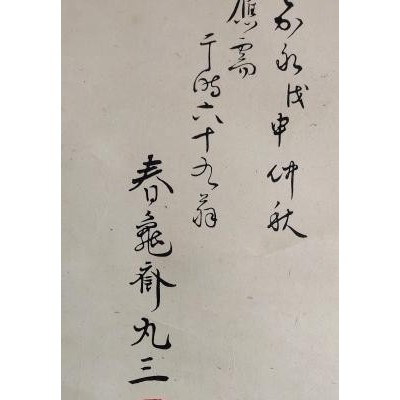 嘉永戊申仲秋
應需
于時六十九翁
春龜齋丸三